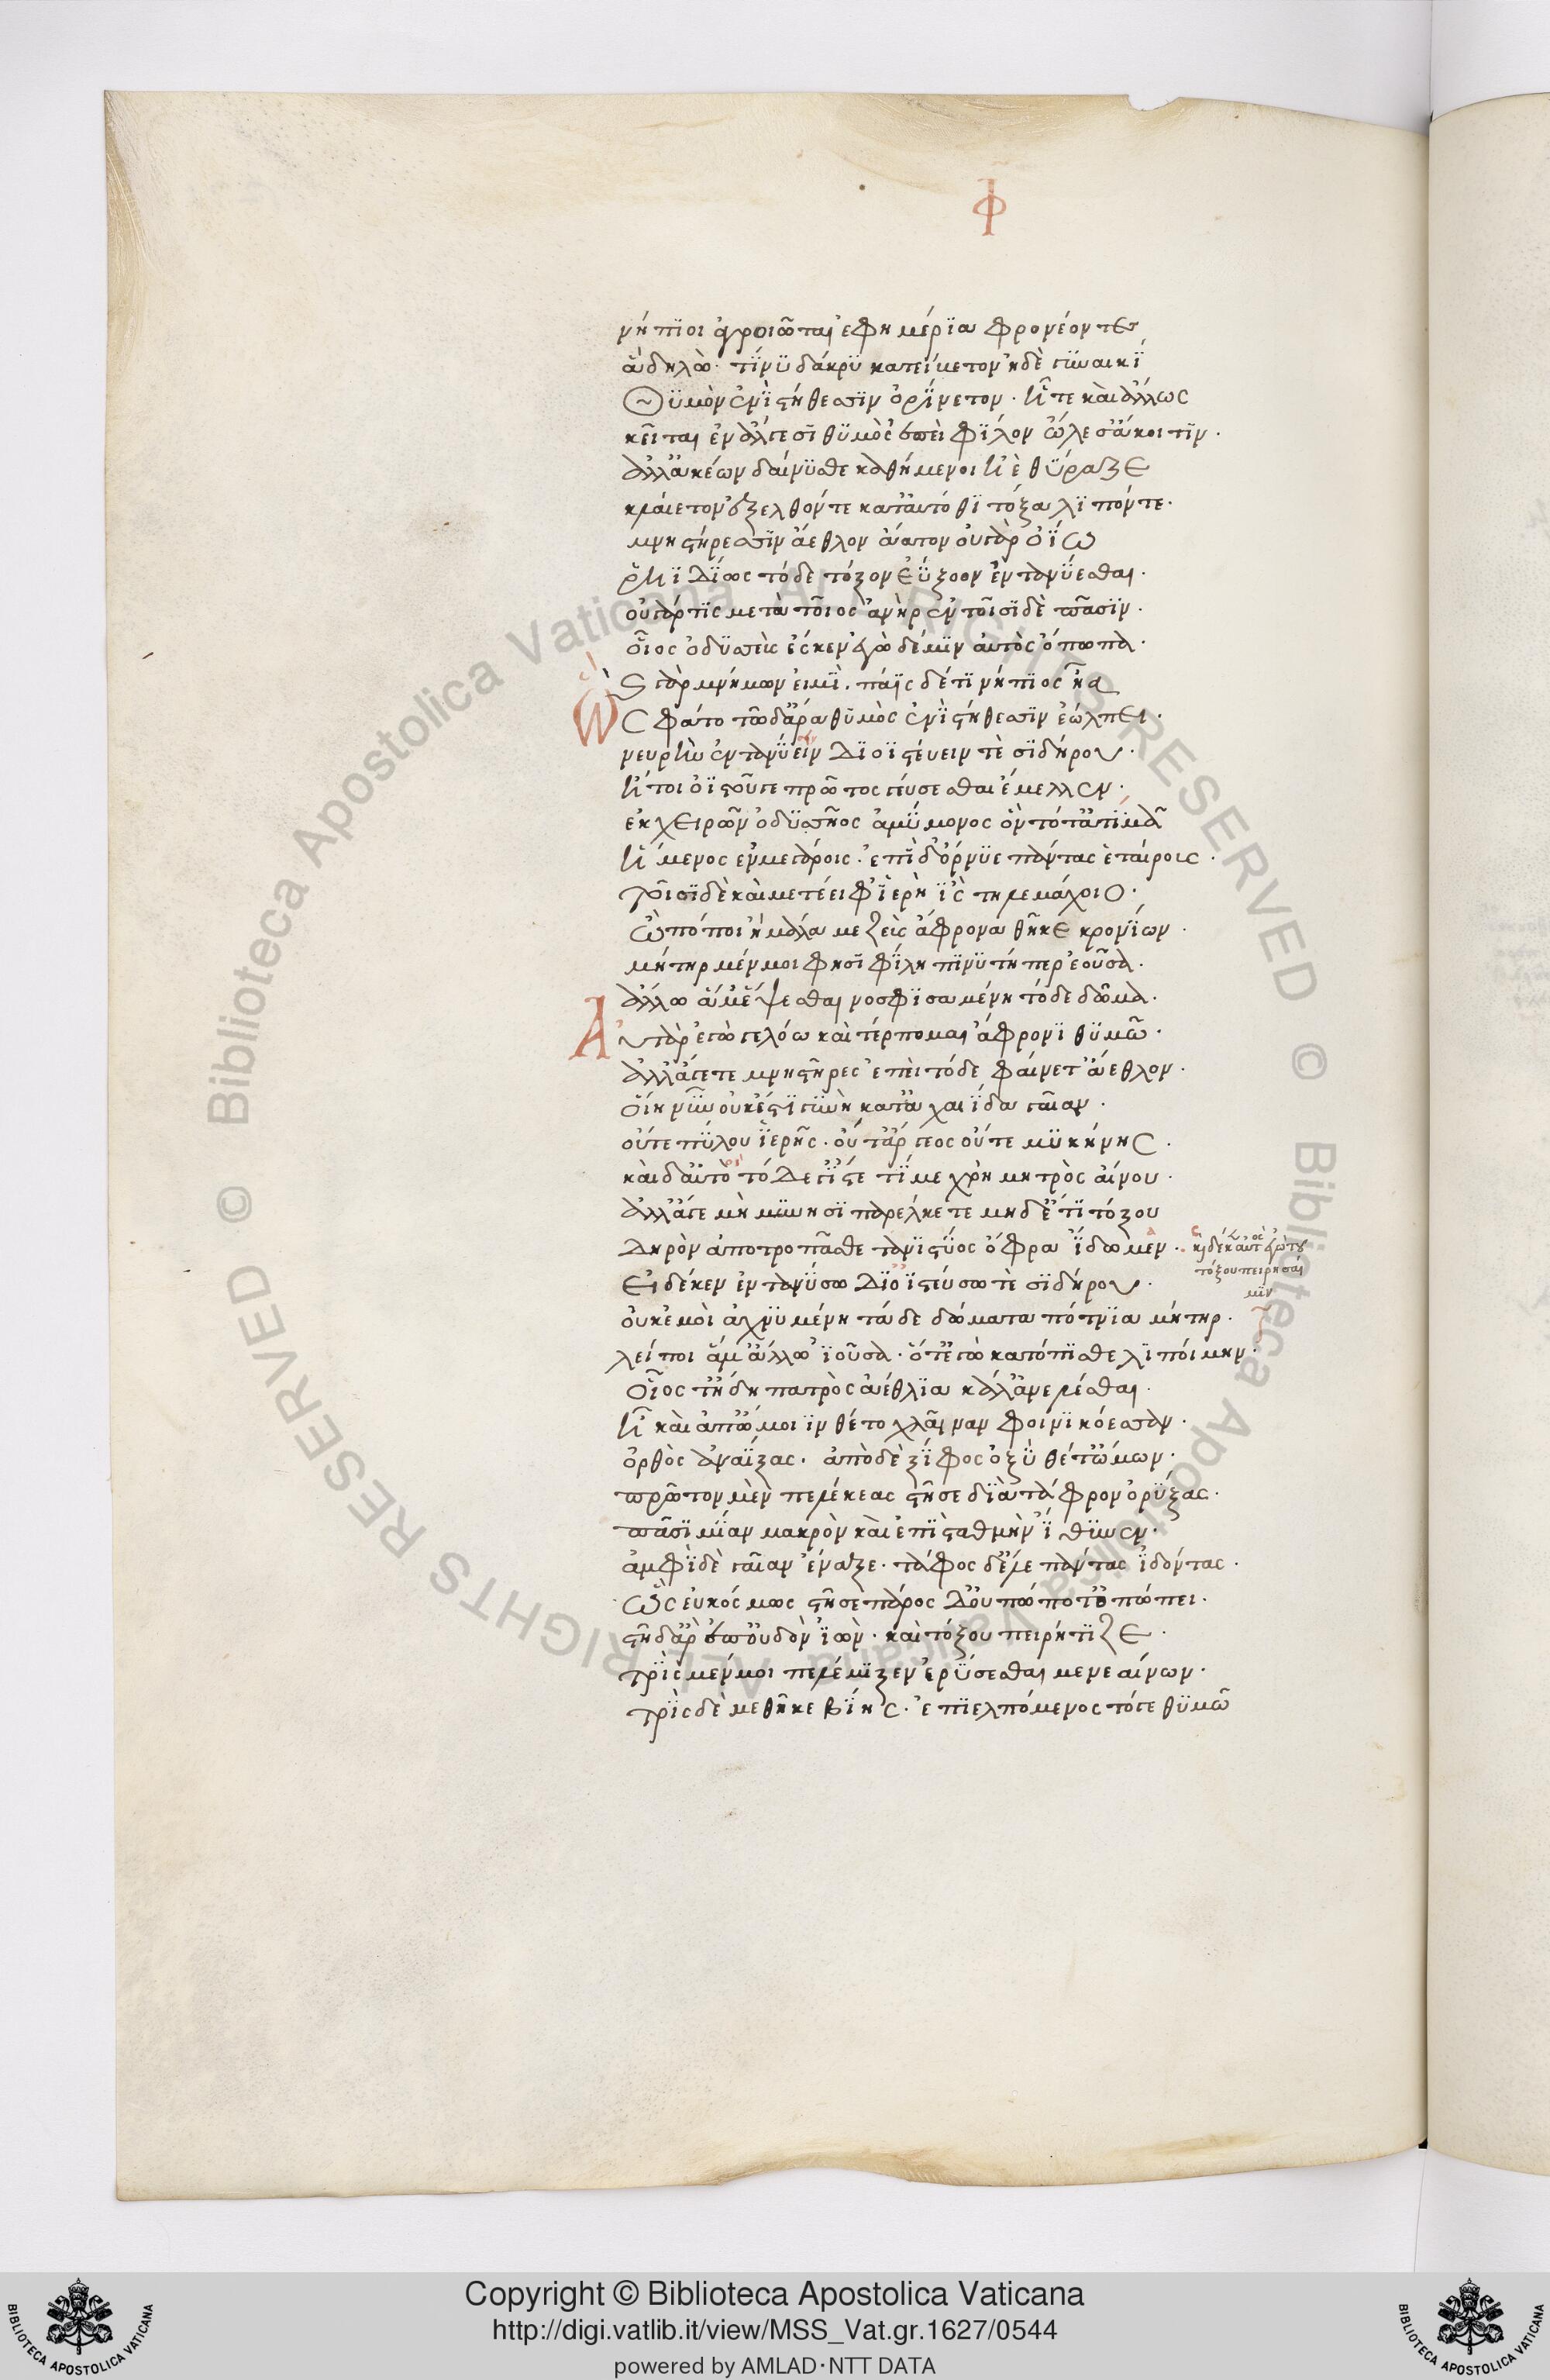 Φ
νήπϊοι ἀγροιῶται ἐφημέρϊα φρονέοντες
ἃ δηλώ· τΐνϋ δάκρϋ κατείμετον ἠδὲ γϋναικΐ
Θϋμὸν ἐνῒ στήθεσϊν ὀρΐνετον· ἧτε καὶ ἄλλως
κεῖται ἐν ἄλγεσϊ θϋμὸς ἐπεὶ φΐλον ὤλεσ' ἄκοιτϊν·
ἀλλ' ἀκέων δαίνϋσθε καθήμενοι ἠὲ θΰραζε
κλαίετον ἐξελθόντε κατ' αὐτόθϊ τόξα λϊπόντε·
μνηστήρεσσϊν ἄεθλον ἀάατον οὐ γὰρ ὀΐω
ῥηϊδΐως τόδε τόξον ἐΰξοον ἐντανΰεσθαι·
οὐ γάρ τϊς μέτα τοῖος ἀνὴρ ἐν τοῖσϊδὲ πᾶσϊν·
οἷος ὀδϋσσεὺς ἔσκεν ἐγὼ δέ μϊν αὐτὸς ὄπωπα·
καὶ γὰρ μνήμων εἰμΐ· πάϊς δ' ἔτϊ νήπϊος ἦα
Ὣς φάτο τῶ δ' ἄρα θϋμὸς ἐνῒ στήθεσσϊν ἐώλπει·
νευρὴν ἐντανΰειν δϊοϊστεύειν τὲ σϊδήρου·
ἤτοι ὀϊστοῦ γε πρῶτος γεύσεσθαι ἔμελλεν·
ἐκ χειρῶν ὀδϋσσῆος ἀμΰμονος ὃν τότ' ἀτΐμα
ἥμενος ἐν μεγάροις· ἐπῒ δ' ὄρνϋε πάντας ἑταίρους·
τοῖσϊ δὲ καὶ μετέειφ' ἱερὴ ΐς τηλεμάχοιο·
ὢ πόποι ἦ μάλα με ζεὺς ἄφρονα θῆκε κρονΐων·
μήτηρ μέν μοι φησῒ φΐλη πϊνϋτή περ ἐοῦσα·
ἄλλω ἅμ' ἕψεσθαι νοσφϊσαμένη τόδε δῶμα·
Αὐτὰρ ἐγὼ γελόω καὶ τέρπομαι ἄφρονϊ θϋμῶ·
ἀλλ' ἄγετε μνηστῆρες ἐπεὶ τόδε φαίνετ' ἄεθλον·
οἵη νῦν οὐκ ἔστϊ γϋνὴ κατ' ἀχαιΐδα γαῖαν·
οὔτε πΰλου ἱερῆς· οὔτ' ἄργεος οὔτε μϋκήνης·
καὶ δ' αὐτοὶ τόδε γ' ἴστε τΐ με χρὴ μητρὸς αἴνου·
ἀλλ' ἄγε μὴ μϋνησϊ παρέλκετε μηδ' ἔτϊ τόξου
δηρὸν ἀποτροπᾶσθε τανϋστΰος ὄφρα ἴδωμεν·
καὶ δέ κεν αὐτὸς ἐγὼ τοῦ
τόξου πειρησαί
μϊν
εἰ δέ κεν ἐντανΰσω δϊοϊστεύσω τὲ σϊδήρου·
οὔ κέ μοὶ ἀχνϋμένη τάδε δώματα πότνϊα μήτηρ·
λείποι ἅμ' ἄλλω ἰοῦσα· ὅτ' ἐγὼ κατόπϊσθε λϊποίμην·
οἷός τ' ἤδη πατρὸς ἀέθλϊα κάλ' ἀνελέσθαι·
ἦ καὶ ἀπ' ὤμοιϊν θέτο χλαῖναν φοινϊκόεσσαν·
ὀρθὸς ἀναΐξας· ἀπὸ δὲ ξΐφος ὀξὺ θέτ' ὤμων·
πρῶτον μὲν πελέκεας στῆσε δϊὰ τάφρον ὀρΰξας·
πᾶσϊ μΐαν μακρὸν καὶ ἐπῒ στάθμην ΐθϋνεν·
ἀμφῒ δὲ γαῖαν ἔναξε· τάφος δ' ἕλε πάντας ἰδόντας·
ὡς εὐκόσμως στῆσε πάρος δ' οὔπώποτ' ὀπώπει·
στῆ δ' ἄρ' ἐπ' οὐδὸν ἰὼν· καὶ τόξου πειρήτϊζε·
τρῒς μέν μοι πελέμϊξεν ἐρΰσεσθαι μενεαίνων·
τρῒς δὲ μεθῆκε βΐης· ἐπϊελπόμενος τότε θϋμῶ
Copyright © Biblioteca Apostolica Vaticana
http://digi.vatlib.it/view/MSS_Vat.gr.1627/0544
powered by AMLAD·NTT DATA